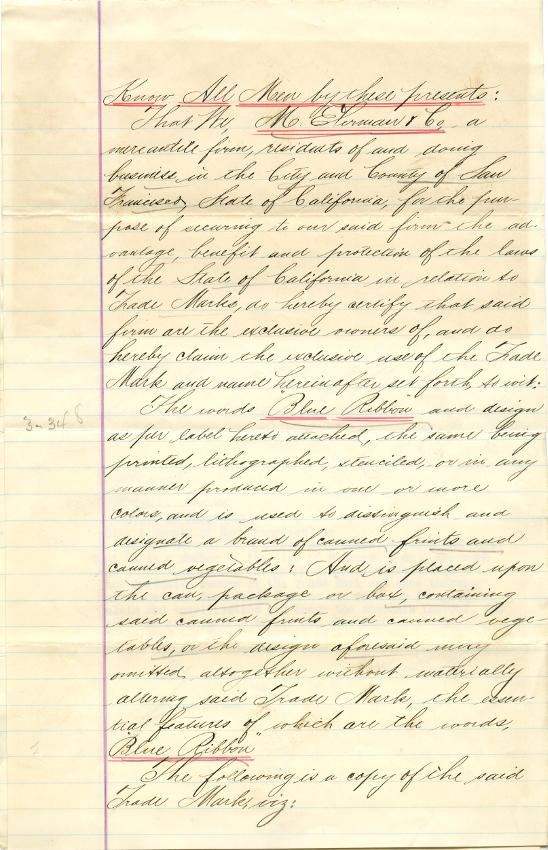 Know All Men by these presents:
That We M. Ehrman & Co, a
mercantile firm, residents of and doing
business, in the City and County of San
Francisco, State of California, for the pur-
pose of securing to our said firm the ad-
vantage, benefit and protection of the laws
of the State of California in relation to
Trade Marks, do hereby certify that said
firm are the exclusive owners of, and do
hereby claim the exclusive use of the Trade
Mark and name hereinafter set forth, to wit:
The words "Blue Ribbon" and design
3-348
as per label hereto attached, the same being
printed, lithographed, stenciled, or in any
manner produced in one or more
colors, and is used to distinguish and
designate a brand of canned fruits and
canned vegetables: And, is placed upon
the can, package or box, containing
said canned fruits and canned vege-
tables, or the design aforesaid may
omitted altogether without materially
altering said Trade Mark, the essen-
tial features of which are the words,
"Blue Ribbon"
The following is a copy of the said
Trade Mark, viz: